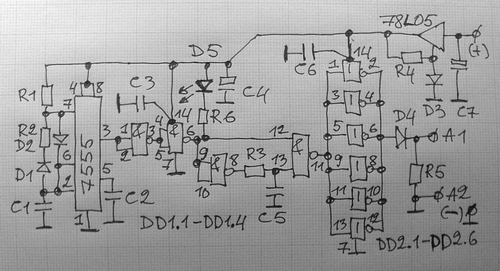 78L05
(+)
D5
C3
C4
C6
14
1
2
R4
D3
C7
R1
4
8
7
14
R6
3
4
R2
D2
7555
3
1
2
3
4
5
6
7
12
11
5
6
D4
A1
D1
6
2
5
9
10
8
R3
13
9
8
R5
C1
C2
1
C5
11
10
A2
(-)
DD1.1-DD1.4
13
12
7
DD2.1-DD2.6